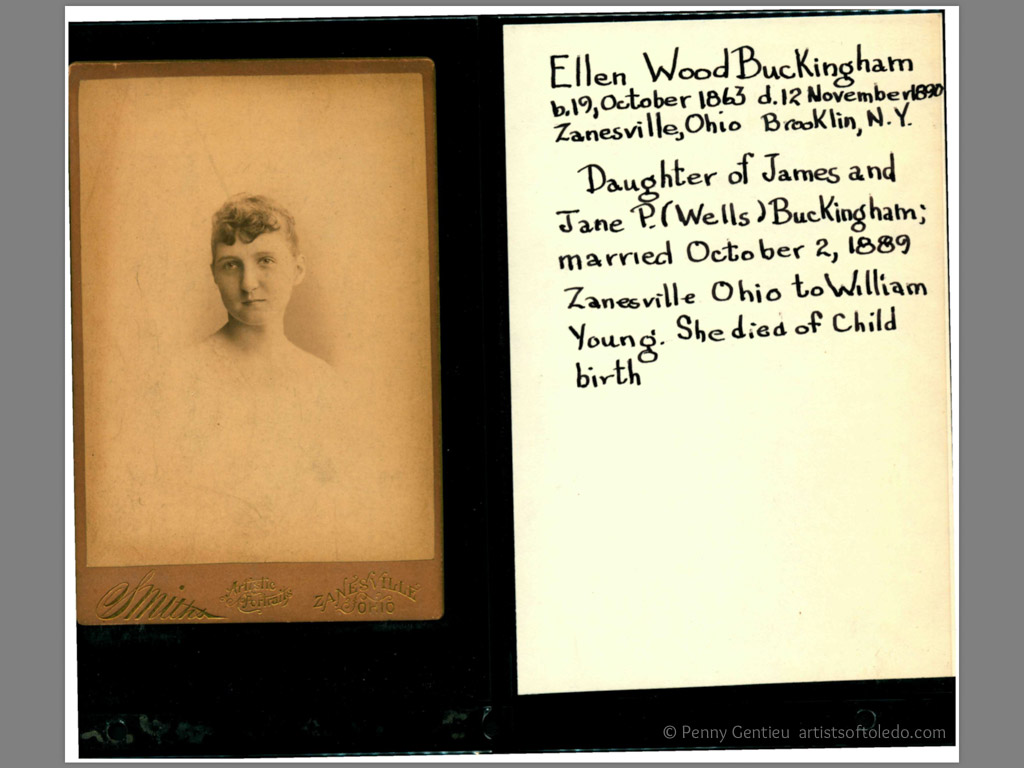 Smiths
Artistic
Portraits
ZANESVILLE
OHIO
Ellen Wood Buckingham
b.19, October 1863 d.12 November 1890
Zanesville, Ohio Brooklin, N.Y.
Daughter of James and
Jane P. (Wells) Buckingham;
married October 2, 1889
Zanesville Ohio to William
Young. She died of Child
birth
© Penny Gentieu artistsoftoledo.com